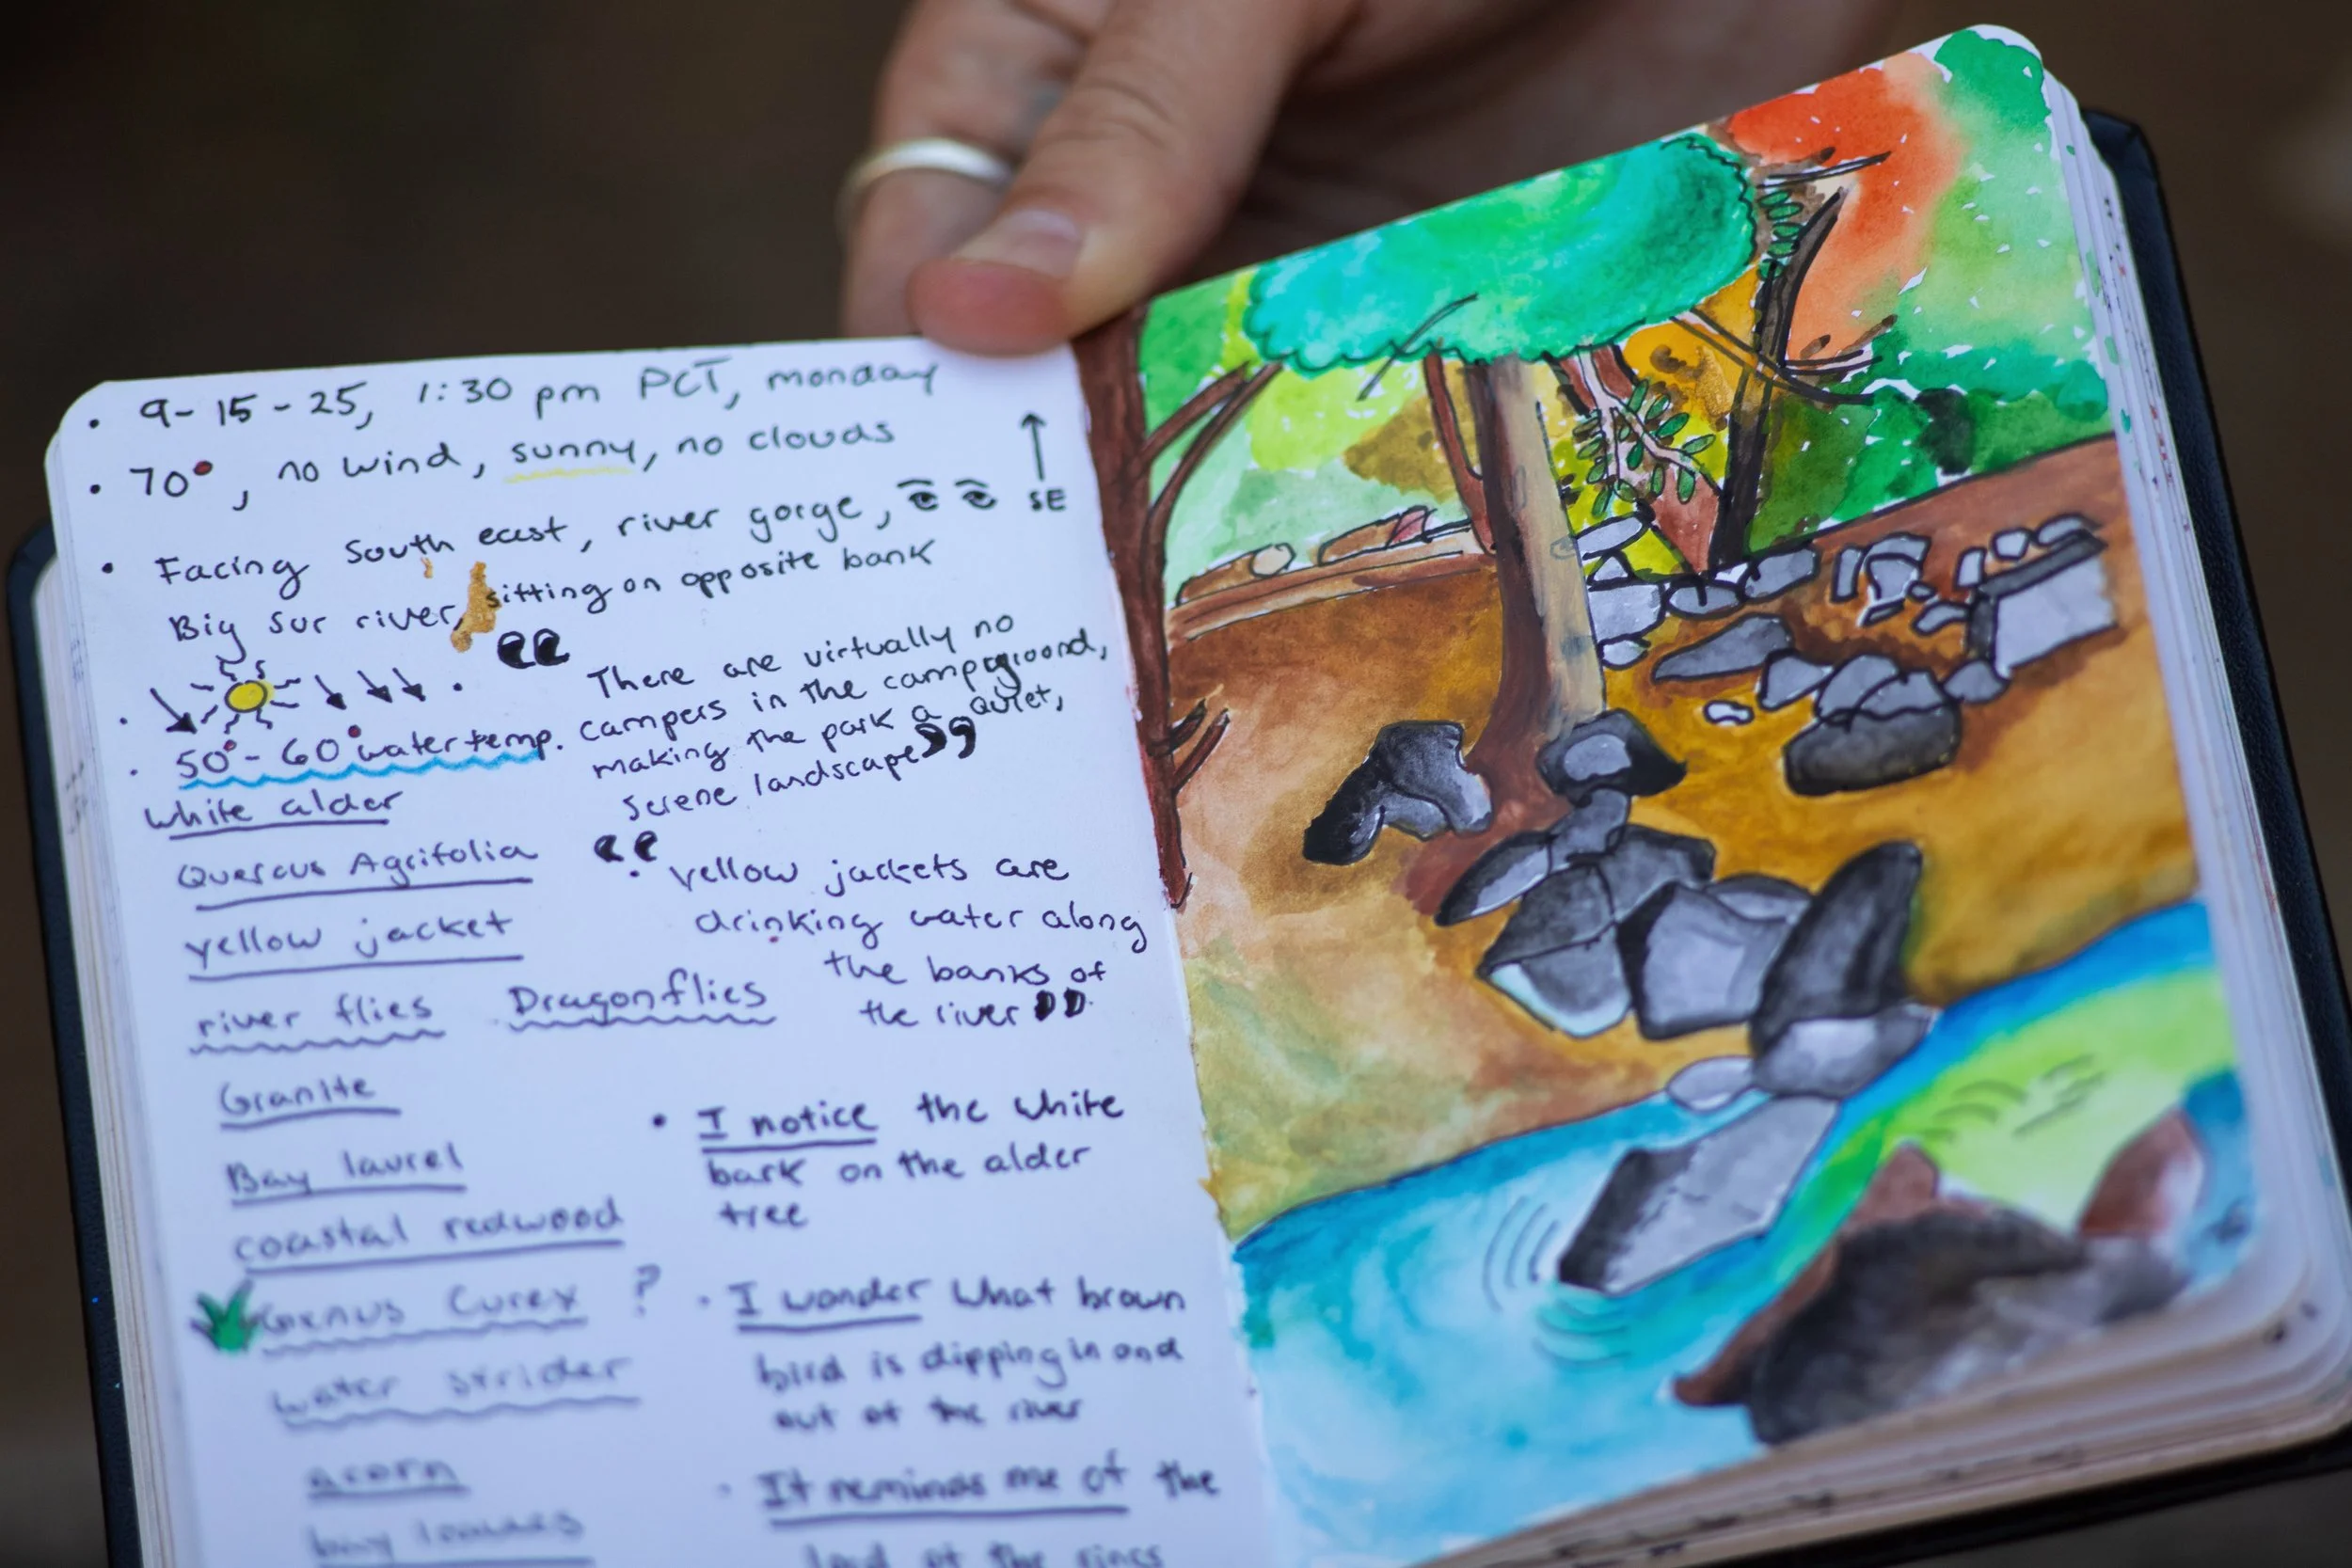 9-15-25, 1:30 pm PCT, monday
70°, no wind, sunny, no clouds
SE
Facing South east, river gorge,
Big Sur river, sitting on opposite bank
50°-60° water temp.
White alder
Quercus Agrifolia
yellow jacket
river flies Dragonflies
Granite
Bay laurel
coastal redwood
Genus Curex ?
water strider
acorn
bay leaves
“ There are virtually no
campers in the campground,
making the park a quiet,
serene landscape”
“ yellow jackets are
drinking water along
the banks of
the river ”
• I notice the white
bark on the alder
tree
• I wonder what brown
bird is dipping in and
out of the river
• It reminds me of the
lord of the rings